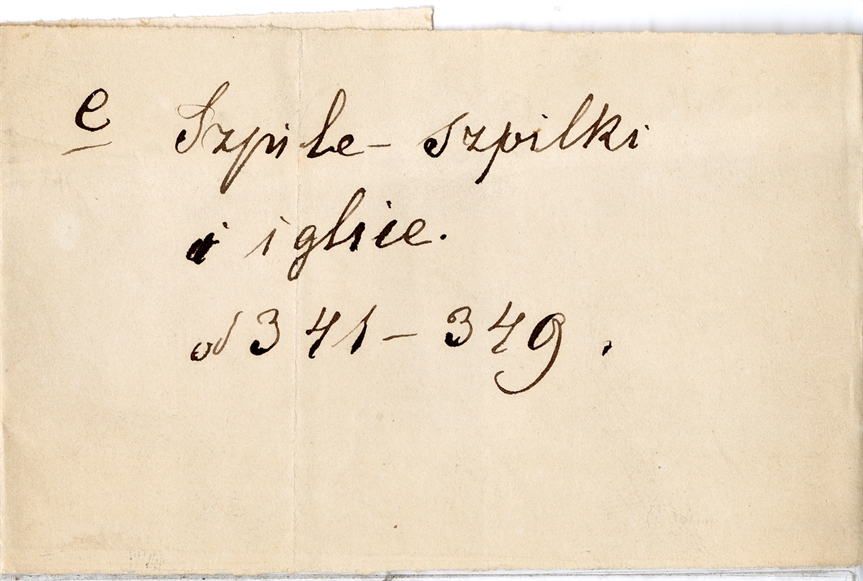 e Szpile - szpilki
i iglice.
od 341 - 349.